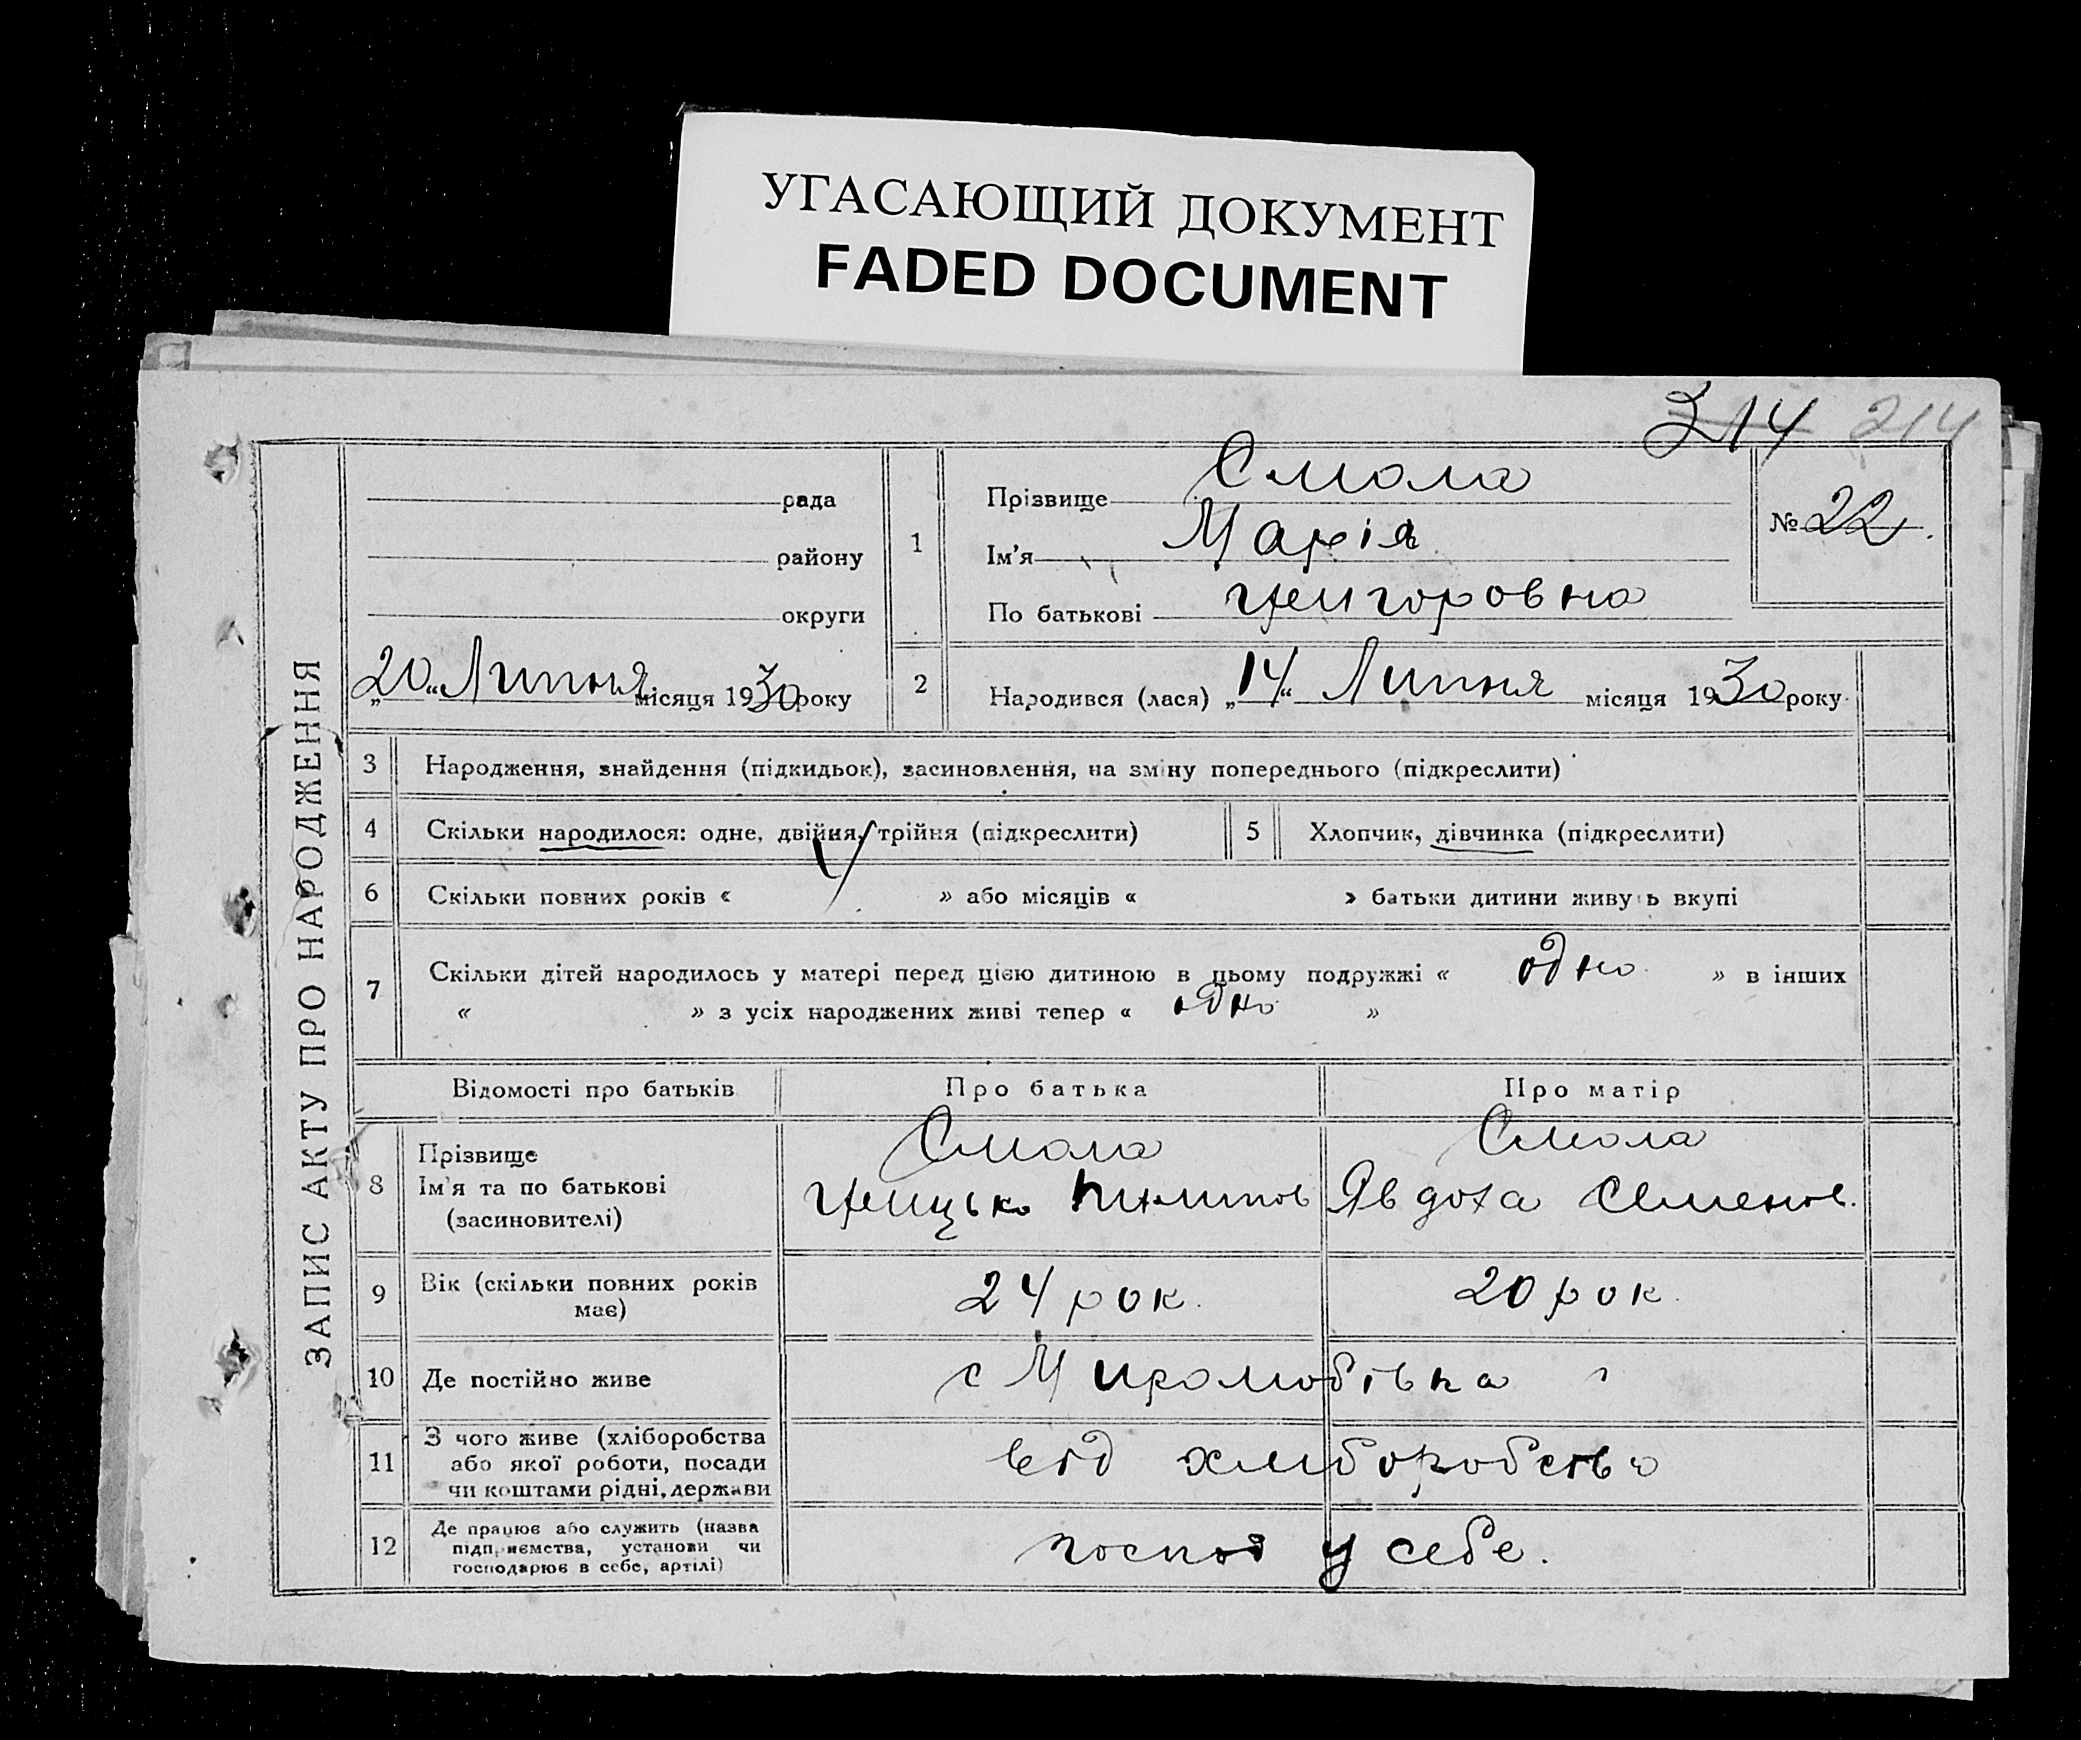 УГАСАЮЩИЙ ДОКУМЕНТ
FADED DOCUMENT
314 214
ЗАПИС АКТУ ПРО НАРОДЖЕННЯ
рада
району
округи
„20“ Липня місяця 1930 року
1
Прізвище Смола
Ім'я Марія
По батькові Григоровна
№ 22.
2
Народився (лася) „14“ Липня місяця 1930 року
3 Народження, знайдення (підкидьок), засиновлення, на зміну попереднього (підкреслити)
4 Скільки народилося: одне, двійня, трійня (підкреслити)
5 Хлопчик, дівчинка (підкреслити)
6 Скільки повних років « » або місяців « » батьки дитини живуть вкупі
7 Скільки дітей народилось у матері перед цією дитиною в цьому подружжі « одно » в інших
« » з усіх народжених живі тепер « одно »
Відомості про батьків
Про батька
Про матір
8 Прізвище
Ім'я та по батькові
(засиновителі)
Смола
Грицько Пилипов
Смола
Явдоха Семенов.
9 Вік (скільки повних років
має)
24 рок.
20 рок.
10 Де постійно живе
с Миролюбівка
11 З чого живе (хліборобства
або якої роботи, посади
чи коштами рідні, держави
від хліборобства
12 Де працює або служить (назва
підприємства, установи чи
господарює в себе, артілі)
у себе.